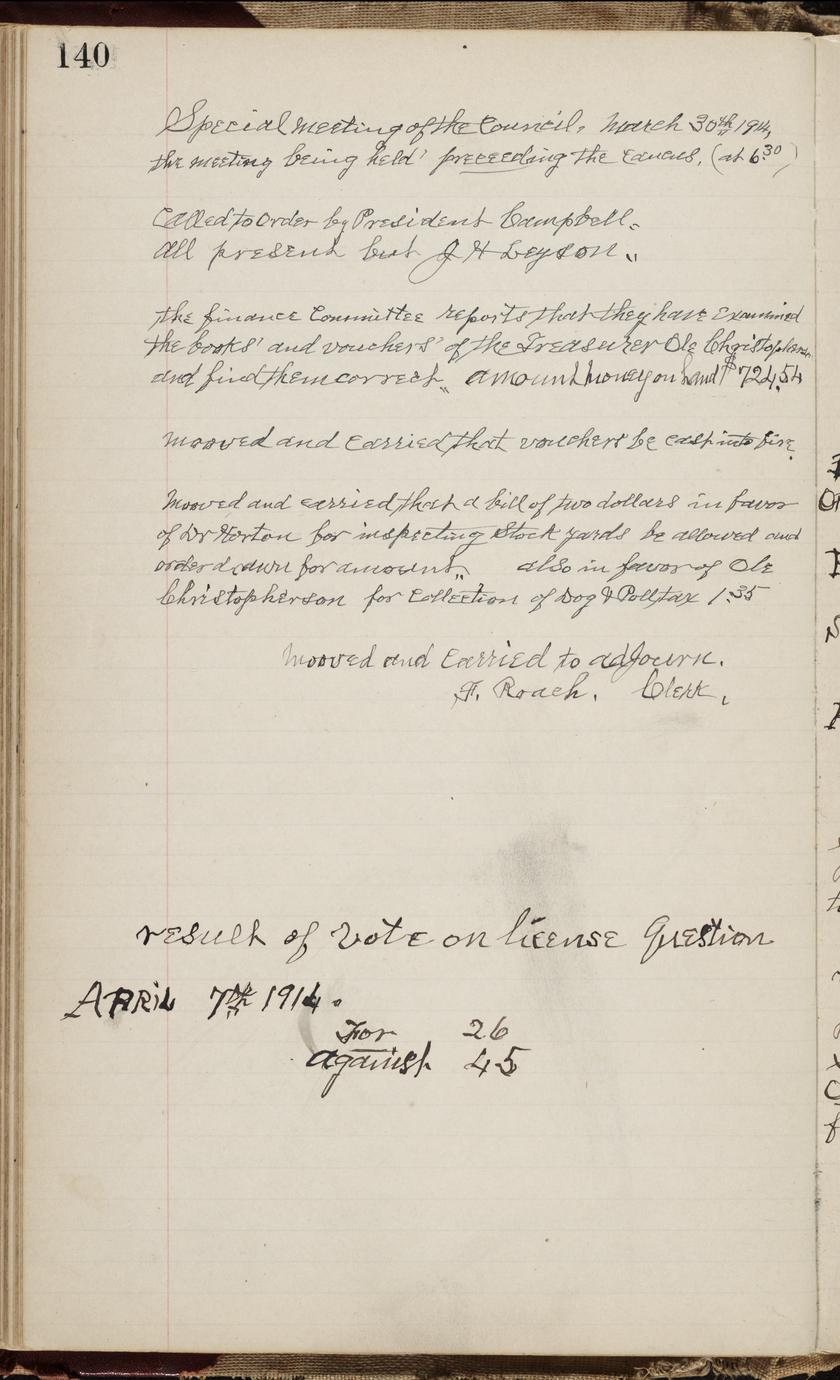 140
Special meeting of the Council, March 30th 1914,
the meeting being held preceeding the caucus, (at 6:30)
Called to order by President Campbell.
all present but J H Leyson.
the finance Committee reports that they have Examined
the books and vouchers of the Treasurer Ole Christopherson
and find them correct, amount money on hand $724.54
Mooved and Carried that vouchers be cast into fire.
Mooved and carried that a bill of two dollars in favor
of Dr Horton for inspecting Stock yards be allowed and
order drawn for amount, also in favor of Ole
Christopherson for Collection of Dog & Polltax 1.35
Mooved and Carried to adjourn.
F. Roach. Clerk,
result of Vote on license Question
APRiL 7th 1914.
For 26
against 45